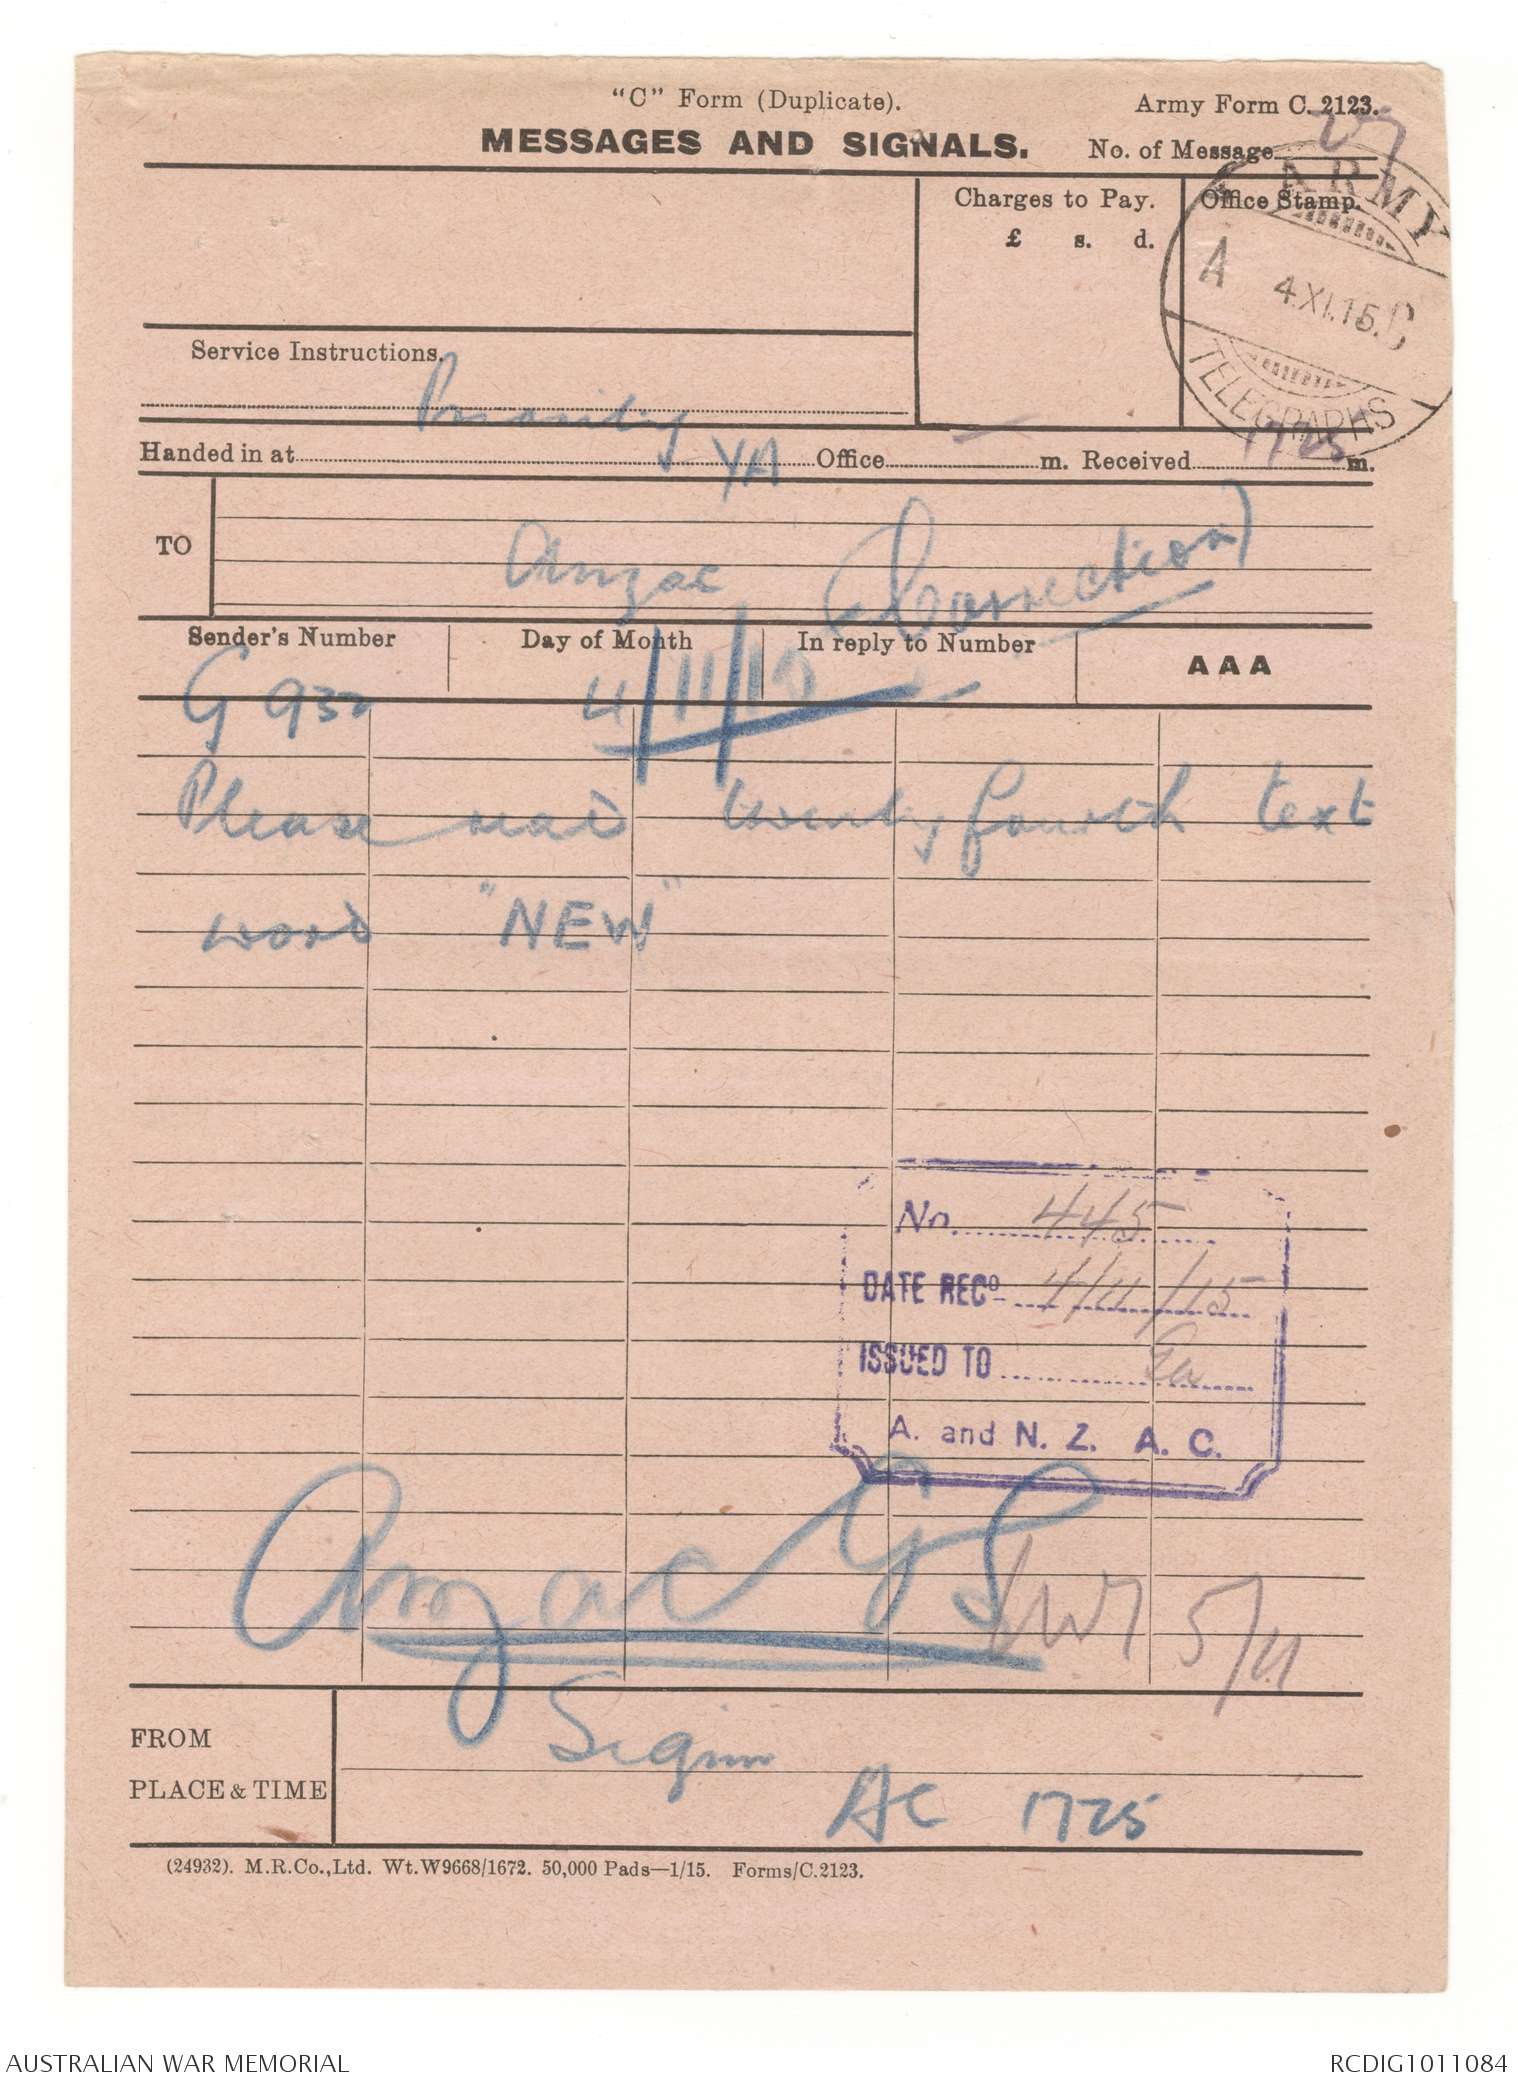 "C" Form (Duplicate).
Army Form C. 2123.
MESSAGES AND SIGNALS.
No. of Message 27
Charges to Pay.
£ s. d.
Office Stamp.
ARMY
A 4.XI.15. C
TELEGRAPHS
Service Instructions.
Priority
Handed in at YA Office m. Received 1725 m.
TO
Anzac (Correction)
Sender's Number
Day of Month
In reply to Number
AAA
G 932
4/11/15
Please read twenty fourth text
word "NEW"
No. 445
DATE RECD 4/11/15
ISSUED TO Ga
A. and N. Z. A. C.
Anzac GS
5/11
FROM
PLACE & TIME
AC 1725
(24932). M.R.Co.,Ltd. Wt.W9668/1672. 50,000 Pads—1/15. Forms/C.2123.
AUSTRALIAN WAR MEMORIAL
RCDIG1011084